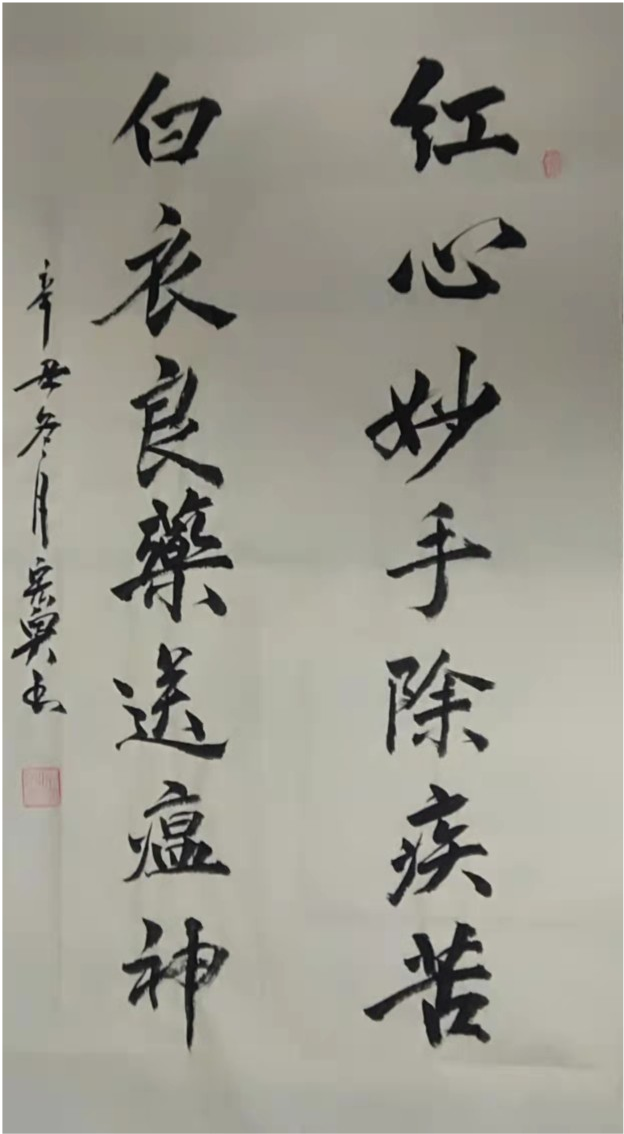 红心妙手除疾苦
白衣良藥送瘟神
辛丑冬月宏寅书